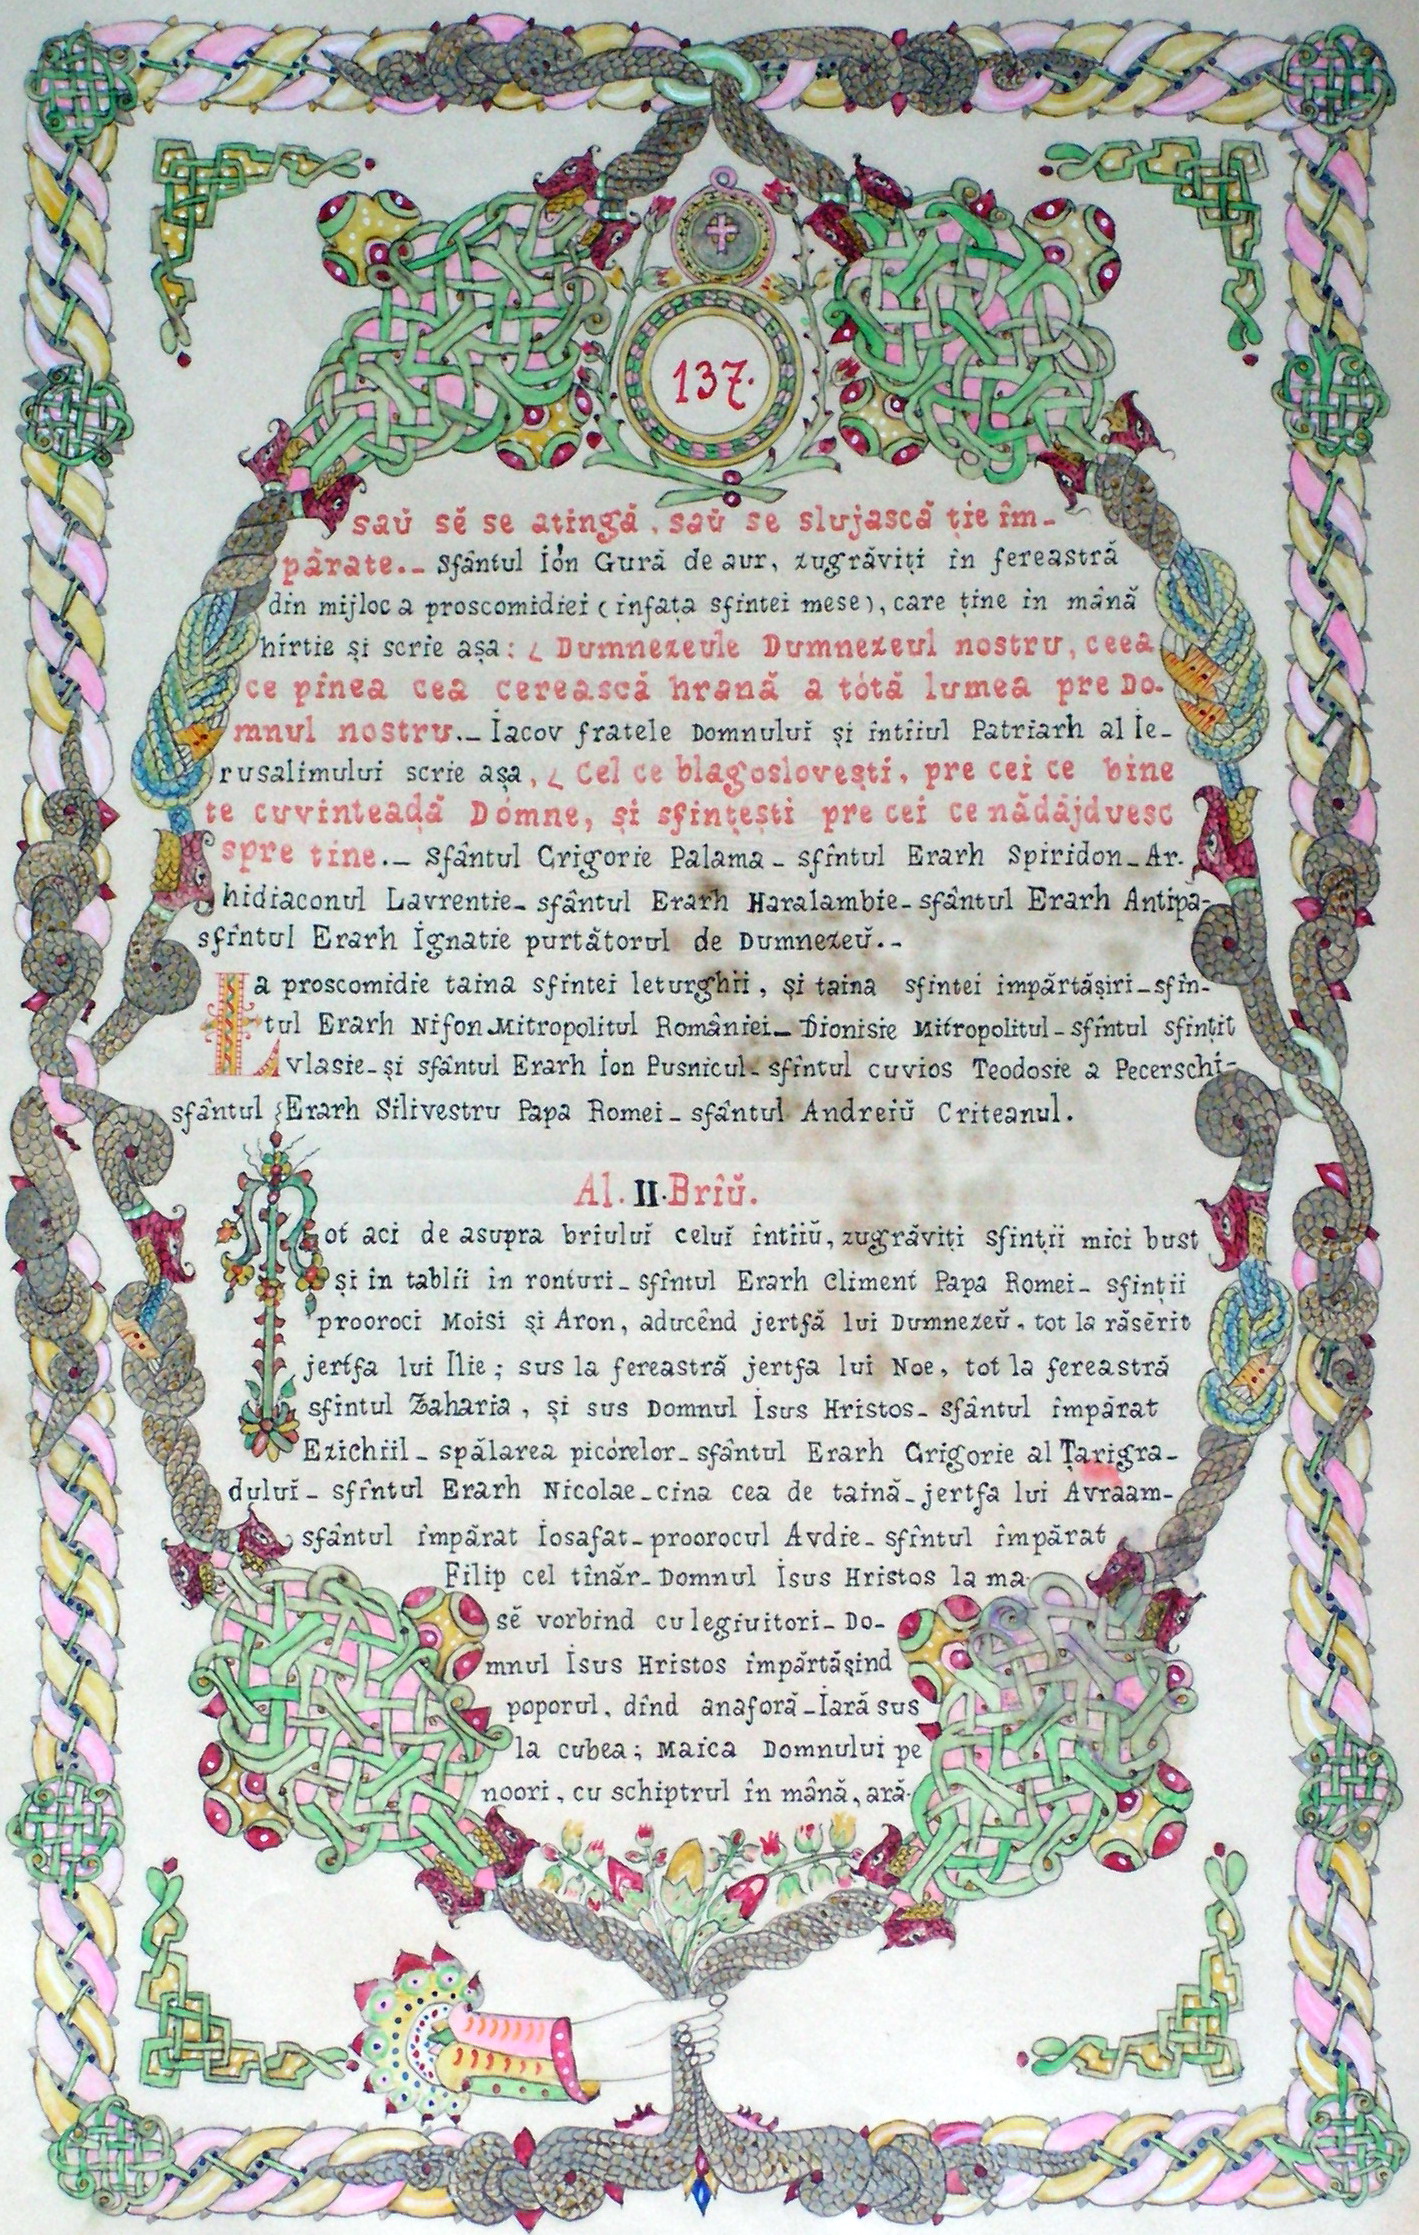 137.
saŭ sĕ se atingă, saŭ se slujască ție îm-
părate._ sfântul Ión Gură de aur, zugrăviți în fereastră
din mijloc a proscomidiei (infața sfintei mese), care ține in mână
hirtie și scrie așa: ¿ Dumnezeule Dumnezeul nostru, ceea
ce pînea cea cerească hrană a tótă lumea pre Do-
mnul nostru._ Iacov fratele Domnuluĭ și intîiul Patriarh al Ie-
rusalimului scrie așa, ¿ Cel ce blagoslovești, pre cei ce bine
te cuvintează Dómne, și sfințești pre cei ce nădăjduesc
spre tine._ Sfântul Grigorie Palama_ sfîntul Erarh Spiridon_Ar-
hidiaconul Lavrentie_ sfântul Erarh Haralambie_sfântul Erarh Antipa-
sfîntul Erarh Ignatie purtătorul de Dumnezeŭ._
La proscomidie taina sfintei leturghii, și taina sfintei impărtășiri_sfîn-
tul Erarh Nifon Mitropolitul României_ Dionisie Mitropolitul_sfîntul sfințit
vlasie_și sfântul Erarh Ion Pusnicul_ sfîntul cuvios Teodosie a Pecerschi-
sfântul Erarh Silivestru Papa Romei_ sfântul Andreiŭ Criteanul.
Al. II. Brîŭ.
Tot aci de asupra brîuluĭ celuĭ întîiŭ, zugrăviți sfinții mici bust
și în tablii in ronturi_ sfîntul Erarh Climent Papa Romei_ sfinții
prooroci Moisi și Aron, aducênd jertfă lui Dumnezeŭ, tot la răsĕrit
jertfa lui Ilie; sus la fereastră jertfa lui Noe, tot la fereastră
sfintul Zaharia, și sus Domnul Isus Hristos_ sfântul împărat
Ezichiil_ spălarea picórelor_ sfântul Erarh Grigorie al Țarigra-
duluĭ_ sfîntul Erarh Nicolae_cina cea de taină_jertfa lui Avraam-
sfântul împărat Iosafat_proorocul Avdie_ sfîntul împărat
Filip cel tînăr_Domnul Isus Hristos la ma-
sĕ vorbind cu legiuitori_ Do-
mnul Isus Hristos împărtășind
poporul, dînd anaforă_Iară sus
la cubea; Maica Domnului pe
noori, cu schiptrul în mână, ară-